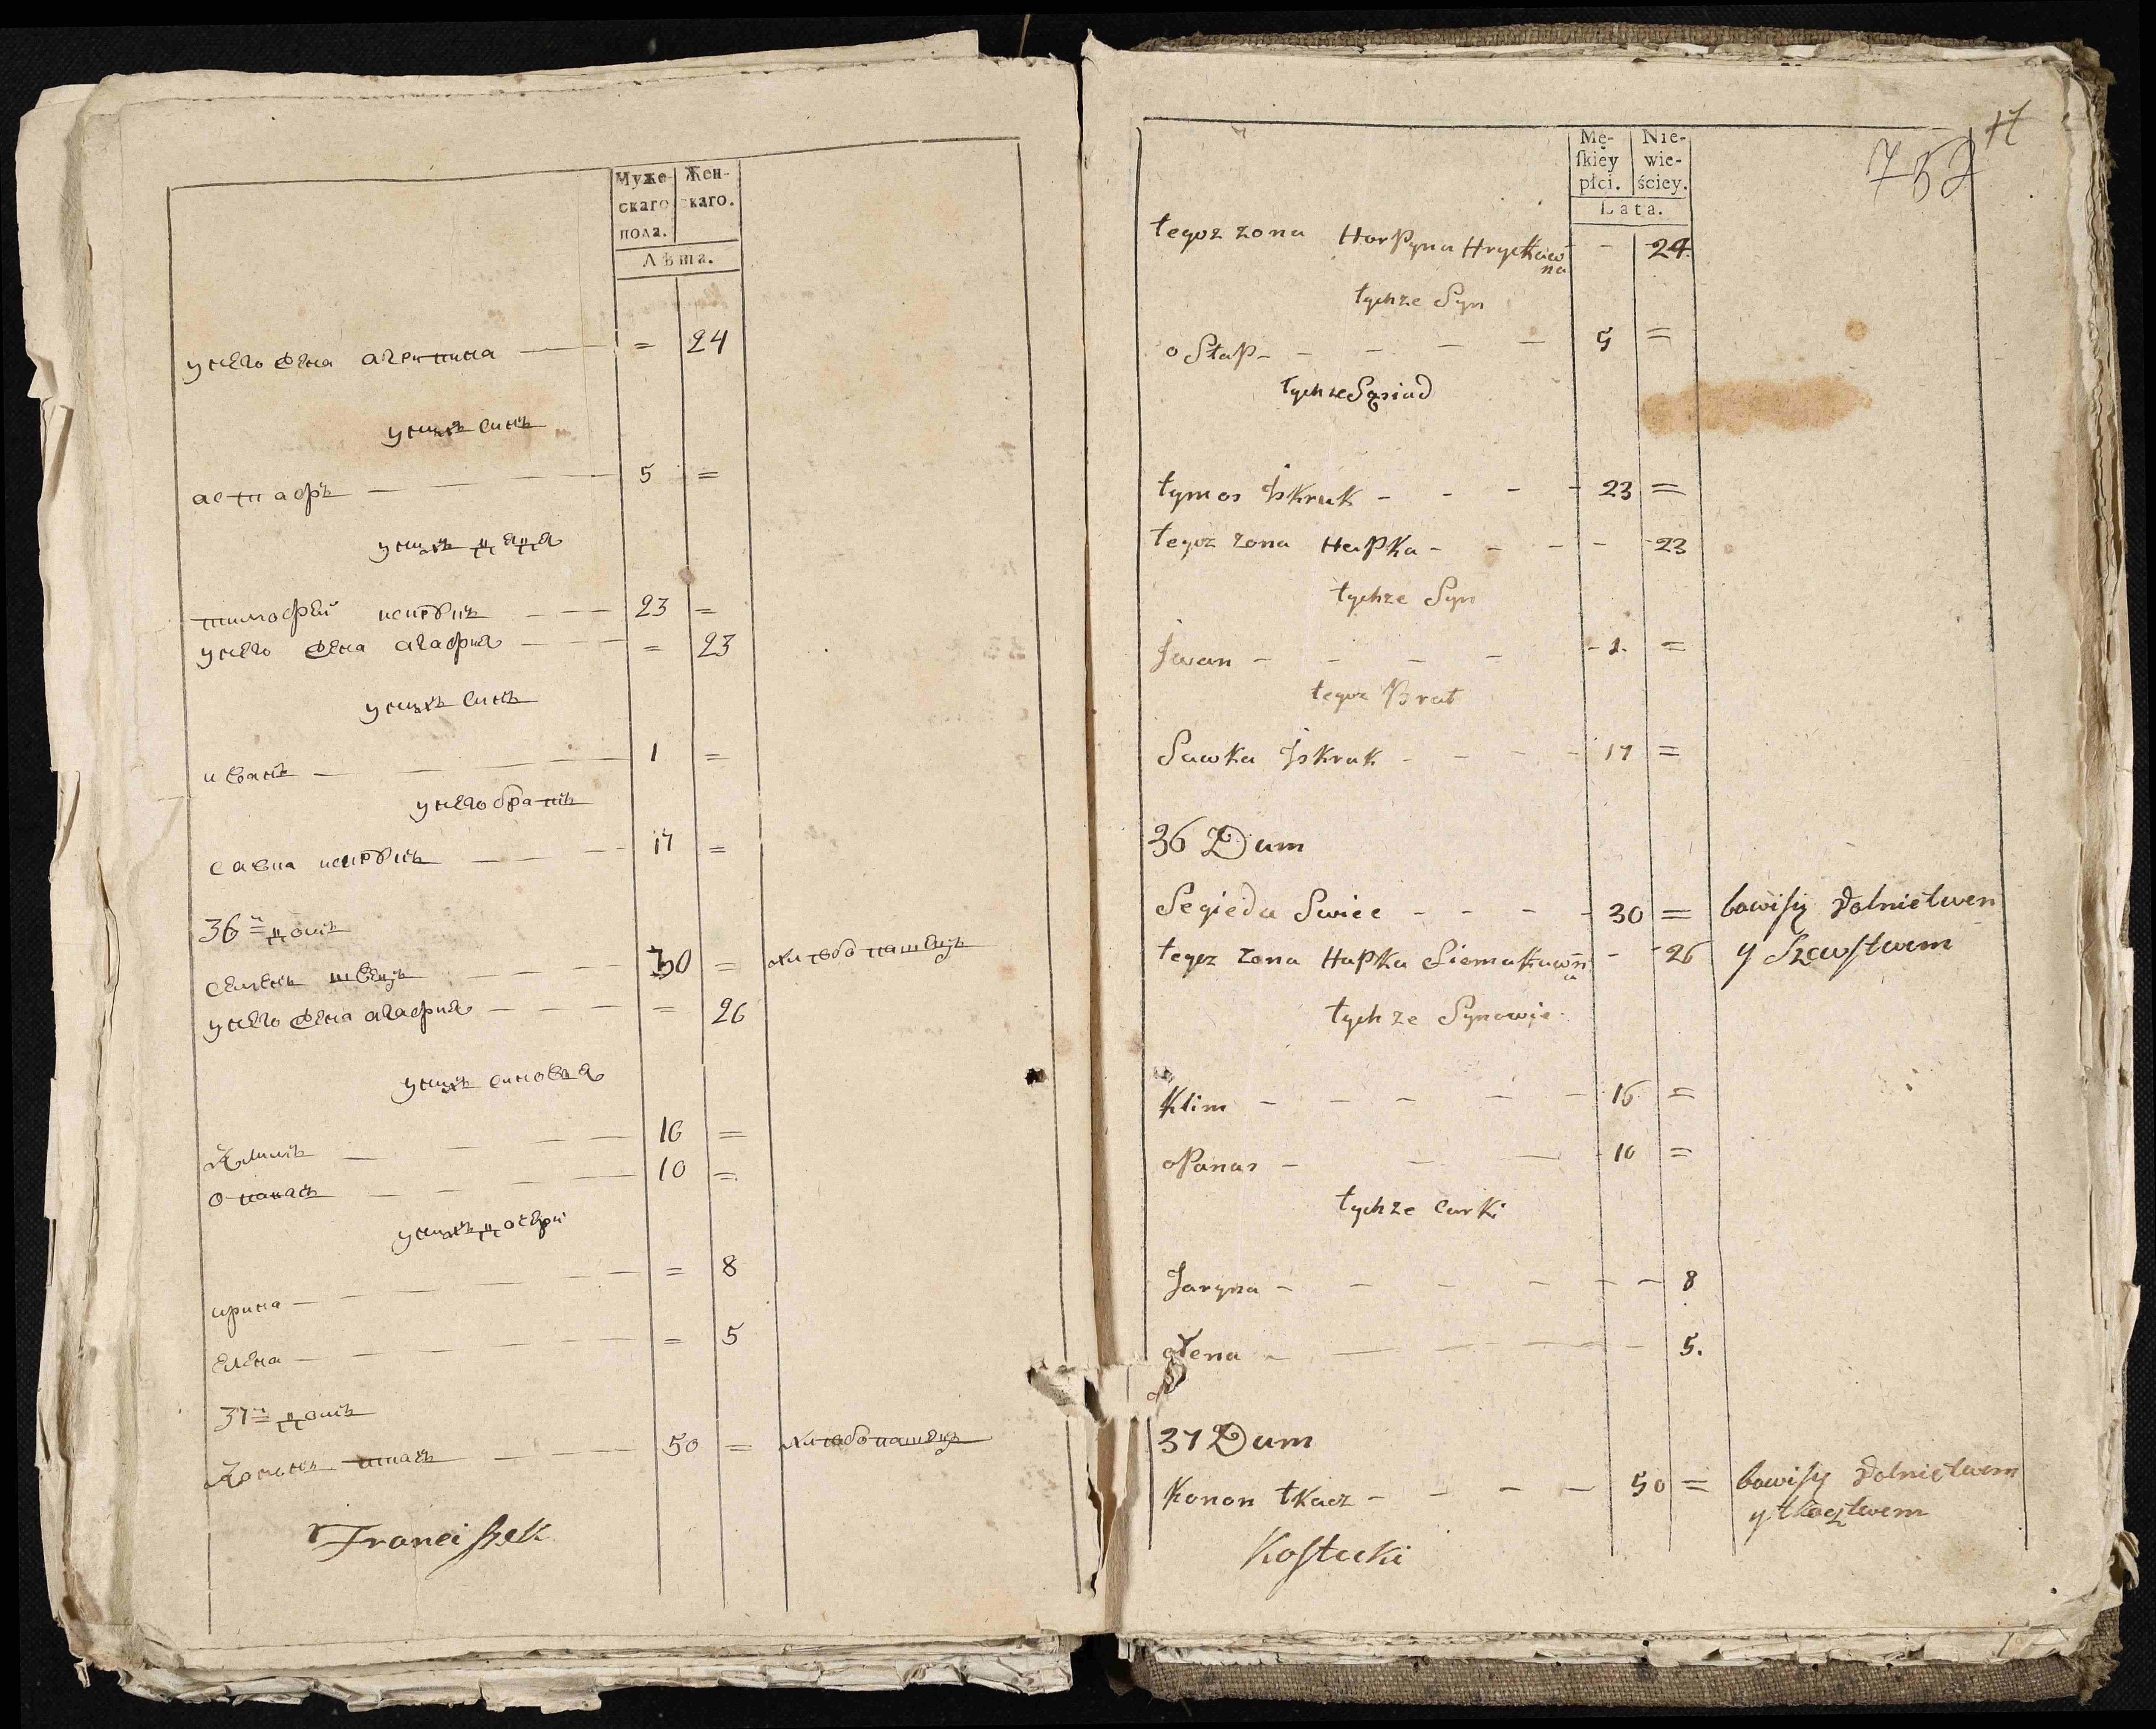 Муже-
скаго
пола.
Жен-
скаго.
Лѣта.
у него жена агрипина — = 24
у нихъ синъ
астафъ — 5 =
у нихъ дядя
тимофей искрукъ — 23 =
у него жена агафия — = 23
у нихъ синъ
иванъ — 1 =
у него братъ
савка искрукъ — 17 =
36й домъ
швецъ — 30 = хлебопашецъ
у него жена агафия — = 26
у нихъ синовья
Климъ — 16 =
опанасъ — 10 =
у нихъ дочери
ирина — = 8
елена — = 5
37й домъ
Кононъ ткачъ — 50 = хлебопашецъ
Franciszek
17
752
Mę-
skiey
płci.
Nie-
wie-
ściey.
Lata.
tegoz zona Horpyna Hryckow
na - 24.
tychze Syn
oStap - - - - 5 =
tychze Sąsiad
tymos Iskruk - - - - 23 =
tegoz zona Hapka - - - - 23
tychze Syn
Jwan - - - - 1. =
tegoz Brat
Sawka Iskruk - - - - 17 =
36 Dum
Segieda Swiec - - - - 30 = bawisię Rolnictwen
tegoz zona Hapka Siemakown
a - 26 y Szewstwem
tychze Synowie
Klim - - - - - 16 =
oPanas - - - 10 =
tychze curki
Jaryna - - - - - - 8
ołena - - - - 5.
37 Dum
Konon tkacz - - - - 50 = bawisię Rolnictwem
y tkactwem
Kostecki